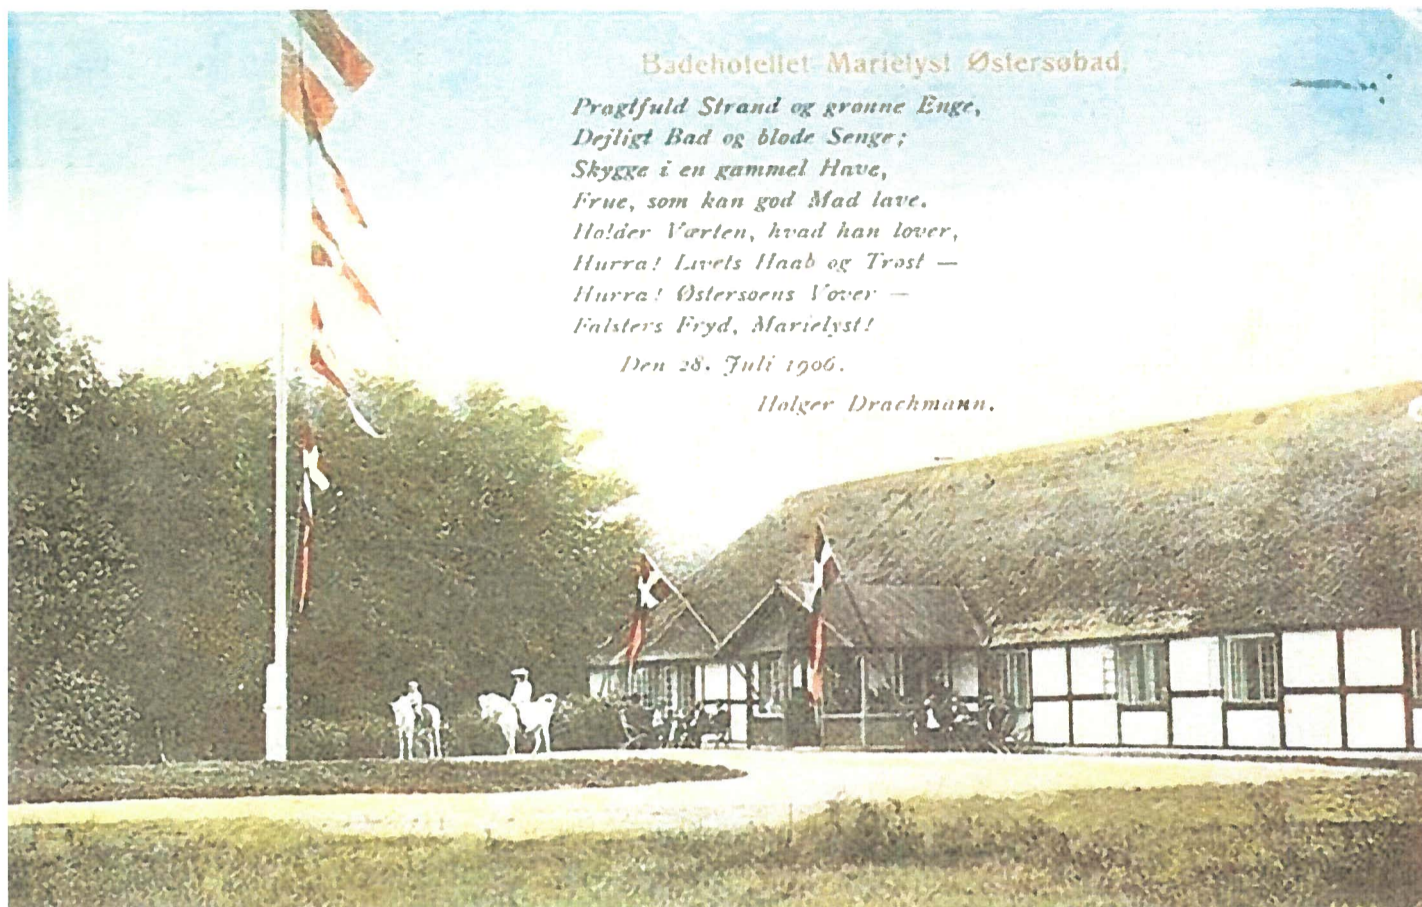 Badehotellet Marielyst Østersøbad.
Pragtfuld Strand og grønne Enge,
Dejligt Bad og bløde Senge;
Skygge i en gammel Have,
Frue, som kan god Mad lave.
Holder Værten, hvad han lover,
Hurra! Livets Haab og Trøst —
Hurra! Østersøens Vover —
Falsters Fryd, Marielyst!
Den 28. Juli 1906.
Holger Drachmann.